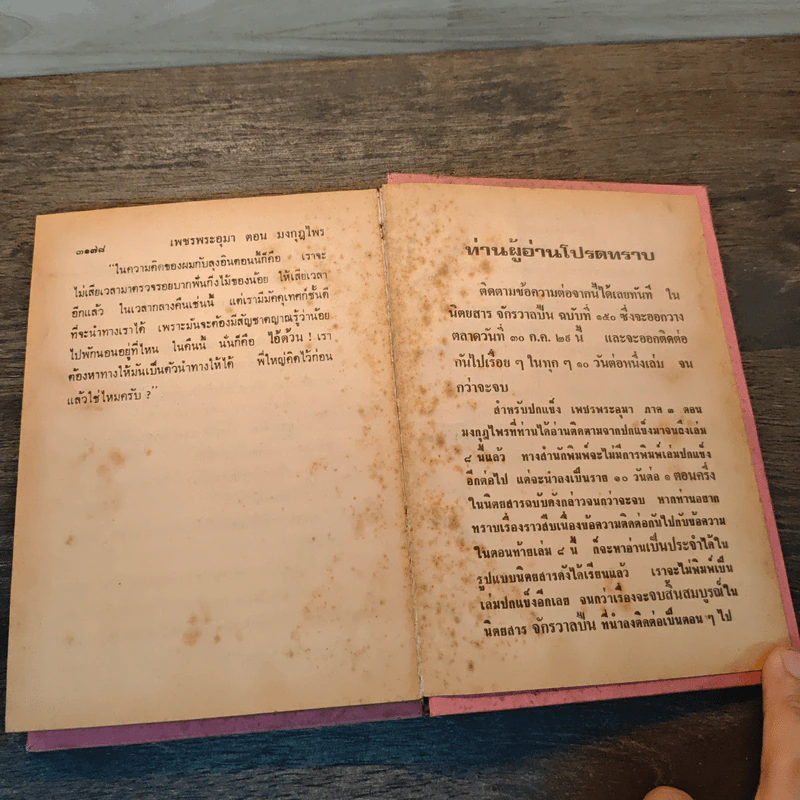 ๓๑๗๘ เพชรพระอุมา ตอน มงกุฎไพร
"ในความคิดของผมกับลุงอินตอนนี้ก็คือ เราจะ
ไม่เสียเวลามาตรวจรอยบากฟันกิ่งไม้ของน้อย ให้เสียเวลา
อีกแล้ว ในเวลากลางคืนเช่นนี้ แต่เรามีมัคคุเทศก์ชั้นดี
ที่จะนำทางเราได้ เพราะมันจะต้องมีสัญชาตญาณรู้ว่าน้อย
ไปพักนอนอยู่ที่ไหน ในคืนนี้ นั่นก็คือ ไอ้ด้วน ! เรา
ต้องหาทางให้มันเป็นตัวนำทางให้ได้ พี่ใหญ่คิดไว้ก่อน
แล้วใช่ไหมครับ ?"
ท่านผู้อ่านโปรดทราบ
ติดตามข้อความต่อจากนี้ได้เลยทันที ใน
นิตยสาร จักรวาลปืน ฉบับที่ ๑๕๐ ซึ่งจะออกวาง
ตลาดวันที่ ๓๐ ก.ค. ๒๙ นี้ และจะออกติดต่อ
กันไปเรื่อย ๆ ในทุก ๆ ๑๐ วันต่อหนึ่งเล่ม จน
กว่าจะจบ
สำหรับปกแข็ง เพชรพระอุมา ภาค ๓ ตอน
มงกุฎไพรที่ท่านได้อ่านติดตามจากปกแข็งมาจนถึงเล่ม
๘ นี้แล้ว ทางสำนักพิมพ์จะไม่มีการพิมพ์เล่มปกแข็ง
อีกต่อไป แต่จะนำลงเป็นราย ๑๐ วันต่อ ๑ ตอนครั้ง
ในนิตยสารฉบับดังกล่าวจนกว่าจะจบ หากท่านอยาก
ทราบเรื่องราวสืบเนื่องข้อความติดต่อกันไปกับข้อความ
ในตอนท้ายเล่ม ๘ นี้ ก็จะหาอ่านเป็นประจำได้ใน
รูปแบบนิตยสารดังได้เรียนแล้ว เราจะไม่พิมพ์เป็น
เล่มปกแข็งอีกเลย จนกว่าเรื่องจะจบสิ้นสมบูรณ์ใน
นิตยสาร จักรวาลปืน ที่นำลงติดต่อเป็นตอน ๆ ไป